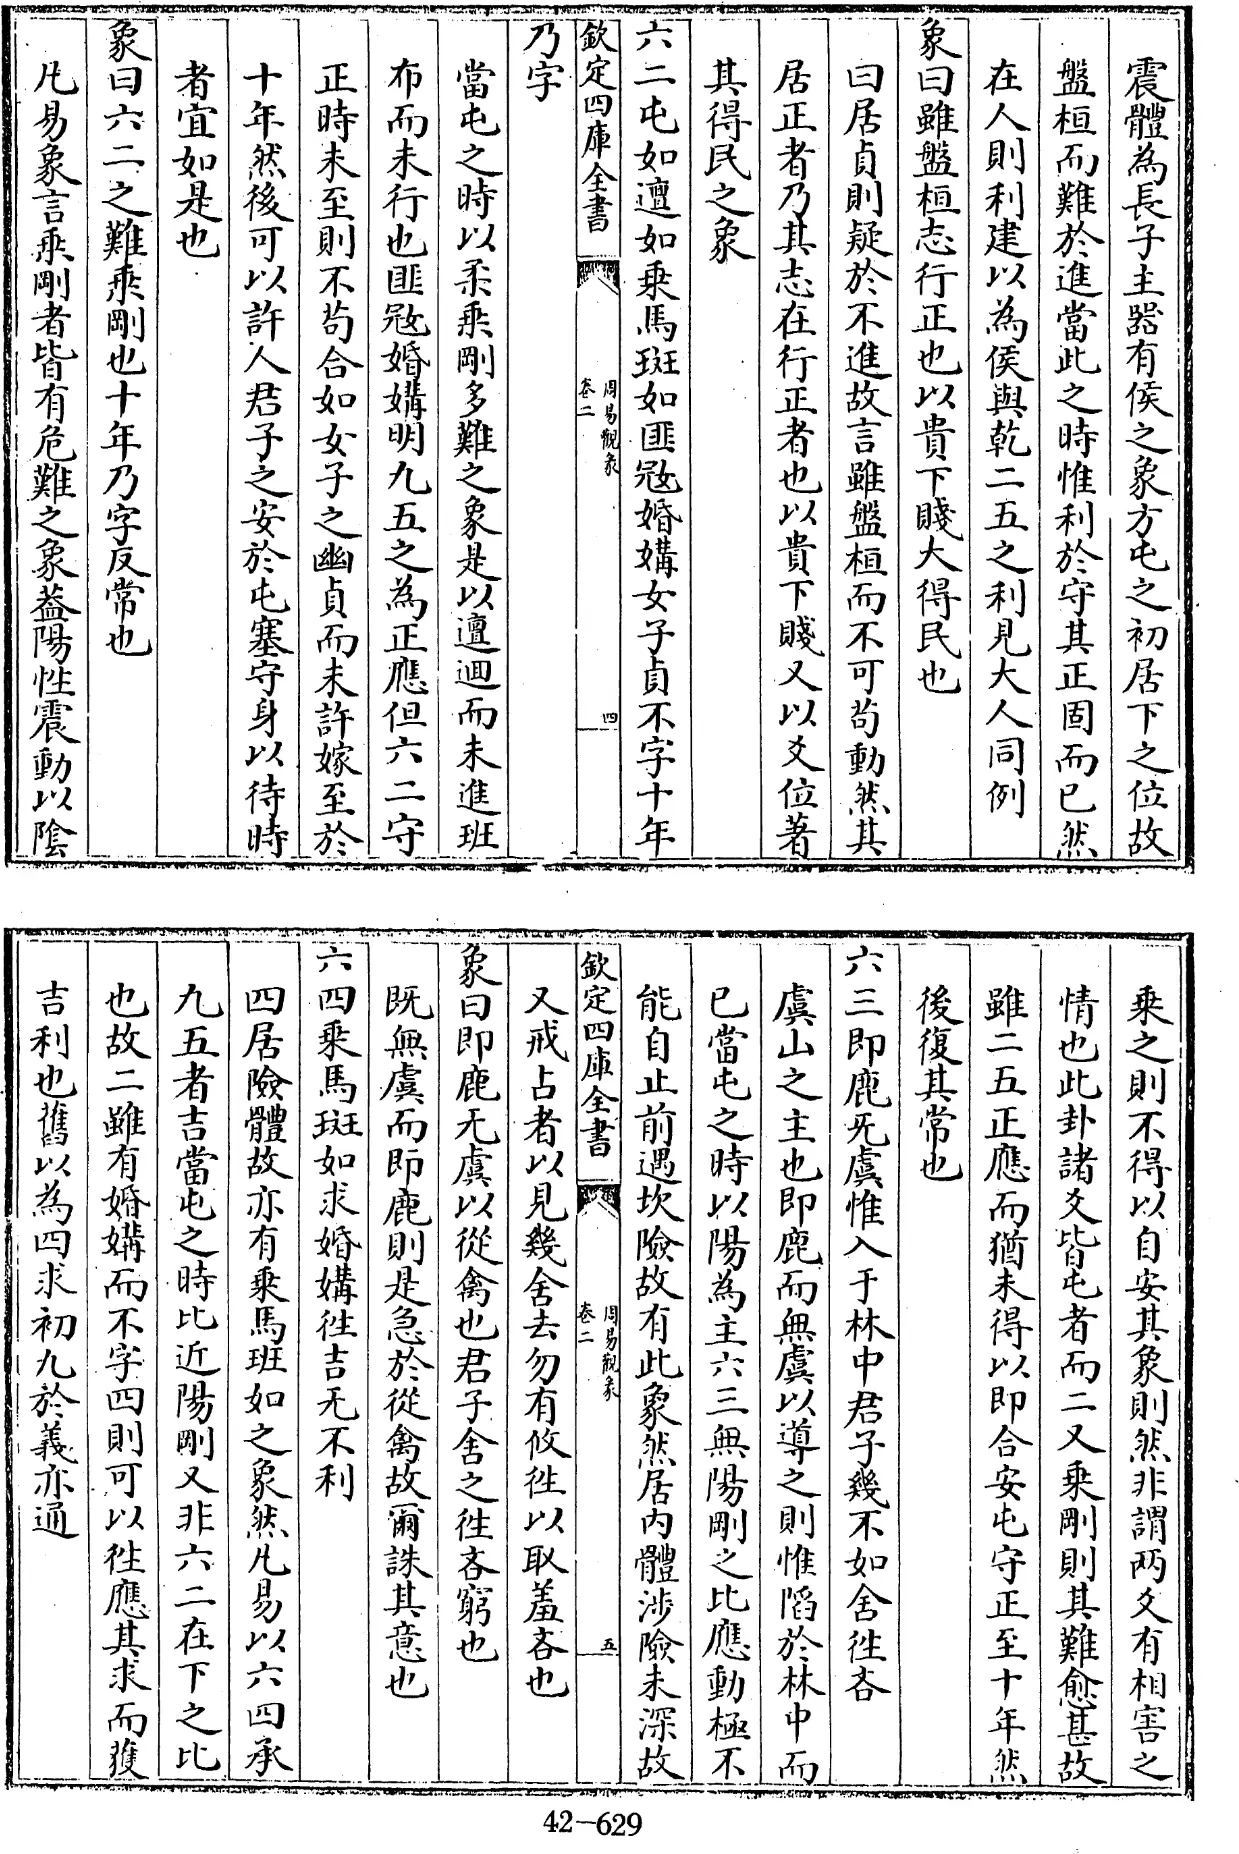 震體為長子主器有侯之象方屯之初居下之位故
盤桓而難於進當此之時惟利於守其正固而已然
在人則利建以為侯與乾二五之利見大人同例
象曰雖盤桓志行正也以貴下賤大得民也
曰居貞則疑於不進故言雖盤桓而不可茍動然其
居正者乃其志在行正者也以貴下賤又以爻位著
其得民之象
六二屯如邅如乘馬班如匪寇婚媾女子貞不字十年
欽定四庫全書
周易觀彖
卷二
四
乃字
當屯之時以柔乘剛多難之象是以邅迴而未進班
布而未行也匪寇婚媾明九五之為正應但六二守
正時未至則不茍合如女子之幽貞而未許嫁至於
十年然後可以許人君子之安於屯塞守身以待時
者宜如是也
象曰六二之難乘剛也十年乃字反常也
凡易象言乘剛者皆有危難之象葢陽性震動以陰
乘之則不得以自安其象則然非謂兩爻有相害之
情也此卦諸爻皆屯者而二又乘剛則其難愈甚故
雖二五正應而猶未得以即合安屯守正至十年然
後復其常也
六三即鹿无虞惟入于林中君子幾不如舍徃吝
虞山之主也即鹿而無虞以導之則惟陷於林中而
已當屯之時以陽為主六三無陽剛之比應動極不
能自止前遇坎險故有此象然居内體涉險未深故
欽定四庫全書
周易觀彖
卷二
五
又戒占者以見幾舍去勿有攸徃以取羞吝也
象曰即鹿无虞以從禽也君子舍之徃吝窮也
既無虞而即鹿則是急於從禽故爾誅其意也
六四乘馬班如求婚媾徃吉无不利
四居險體故亦有乘馬班如之象然凡易以六四承
九五者吉當屯之時比近陽剛又非六二在下之比
也故二雖有婚媾而不字四則可以徃應其求而獲
吉利也舊以為四求初九於義亦通
42-629